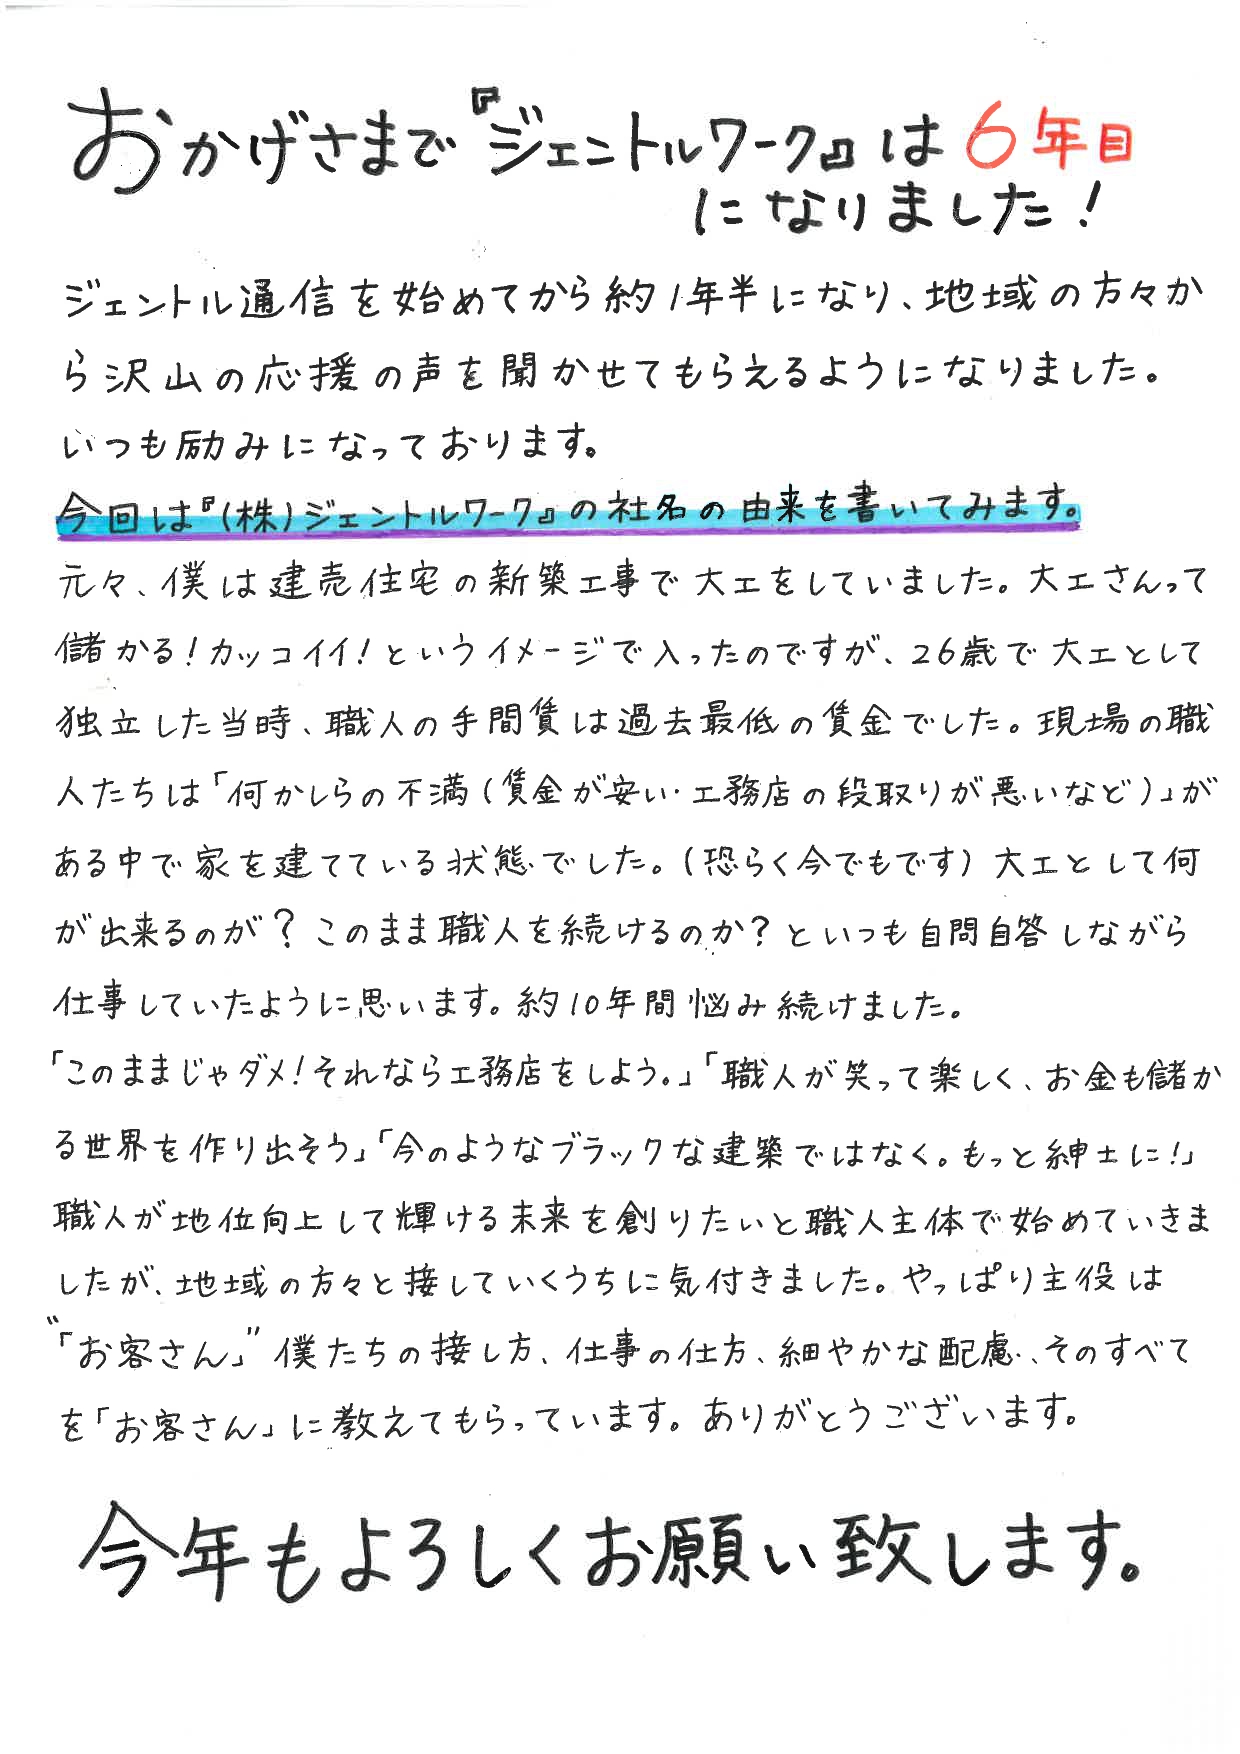 おかげさまで『ジェントルワーク』は6年目
になりました!
ジェントル通信を始めてから約1年半になり、地域の方々か
ら沢山の応援の声を聞かせてもらえるようになりました。
いつも励みになっております。
今回は『(株)ジェントルワーク』の社名の由来を書いてみます。
元々、僕は建売住宅の新築工事で大工をしていました。大工さんって
儲かる!カッコイイ!というイメージで入ったのですが、26歳で大工として
独立した当時、職人の手間賃は過去最低の賃金でした。現場の職
人たちは「何かしらの不満(賃金が安い・工務店の段取りが悪いなど)」が
ある中で家を建てている状態でした。(恐らく今でもです)大工として何
が出来るのが?このまま職人を続けるのか?といつも自問自答しながら
仕事していたように思います。約10年間悩み続けました。
「このままじゃダメ!それなら工務店をしよう。」「職人が笑って楽しく、お金も儲か
る世界を作り出そう」「今のようなブラックな建築ではなく。もっと紳士に!」
職人が地位向上して輝ける未来を創りたいと職人主体で始めていきま
したが、地域の方々と接していくうちに気付きました。やっぱり主役は
“「お客さん」”僕たちの接し方、仕事の仕方、細やかな配慮、そのすべて
を「お客さん」に教えてもらっています。ありがとうございます。
今年もよろしくお願い致します。